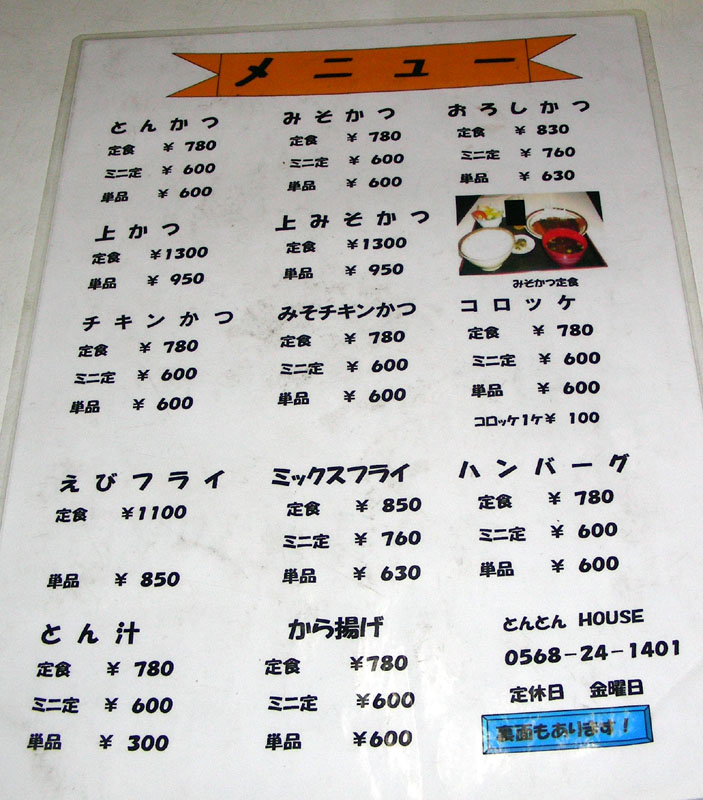 メニュー
とんかつ
定食 ¥ 780
ミニ定 ¥ 600
単品 ¥ 600
みそかつ
定食 ¥ 780
ミニ定 ¥ 600
単品 ¥ 600
おろしかつ
定食 ¥ 830
ミニ定 ¥ 760
単品 ¥ 630
上かつ
定食 ¥1300
単品 ¥ 950
上みそかつ
定食 ¥1300
単品 ¥ 950
みそかつ定食
チキンかつ
定食 ¥ 780
ミニ定 ¥ 600
単品 ¥ 600
みそチキンかつ
定食 ¥ 780
ミニ定 ¥ 600
単品 ¥ 600
コロッケ
定食 ¥ 780
ミニ定 ¥ 600
単品 ¥ 600
コロッケ1ケ¥ 100
えびフライ
定食 ¥1100
単品 ¥ 850
ミックスフライ
定食 ¥ 850
ミニ定 ¥ 760
単品 ¥ 630
ハンバーグ
定食 ¥ 780
ミニ定 ¥ 600
単品 ¥ 600
とん汁
定食 ¥ 780
ミニ定 ¥ 600
単品 ¥ 300
から揚げ
定食 ¥780
ミニ定 ¥600
単品 ¥600
とんとん HOUSE
0568-24-1401
定休日 金曜日
裏面もあります!